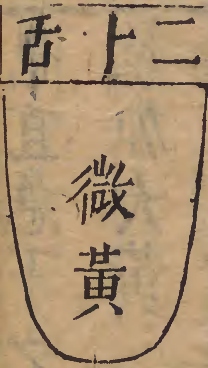 二十舌
微黃